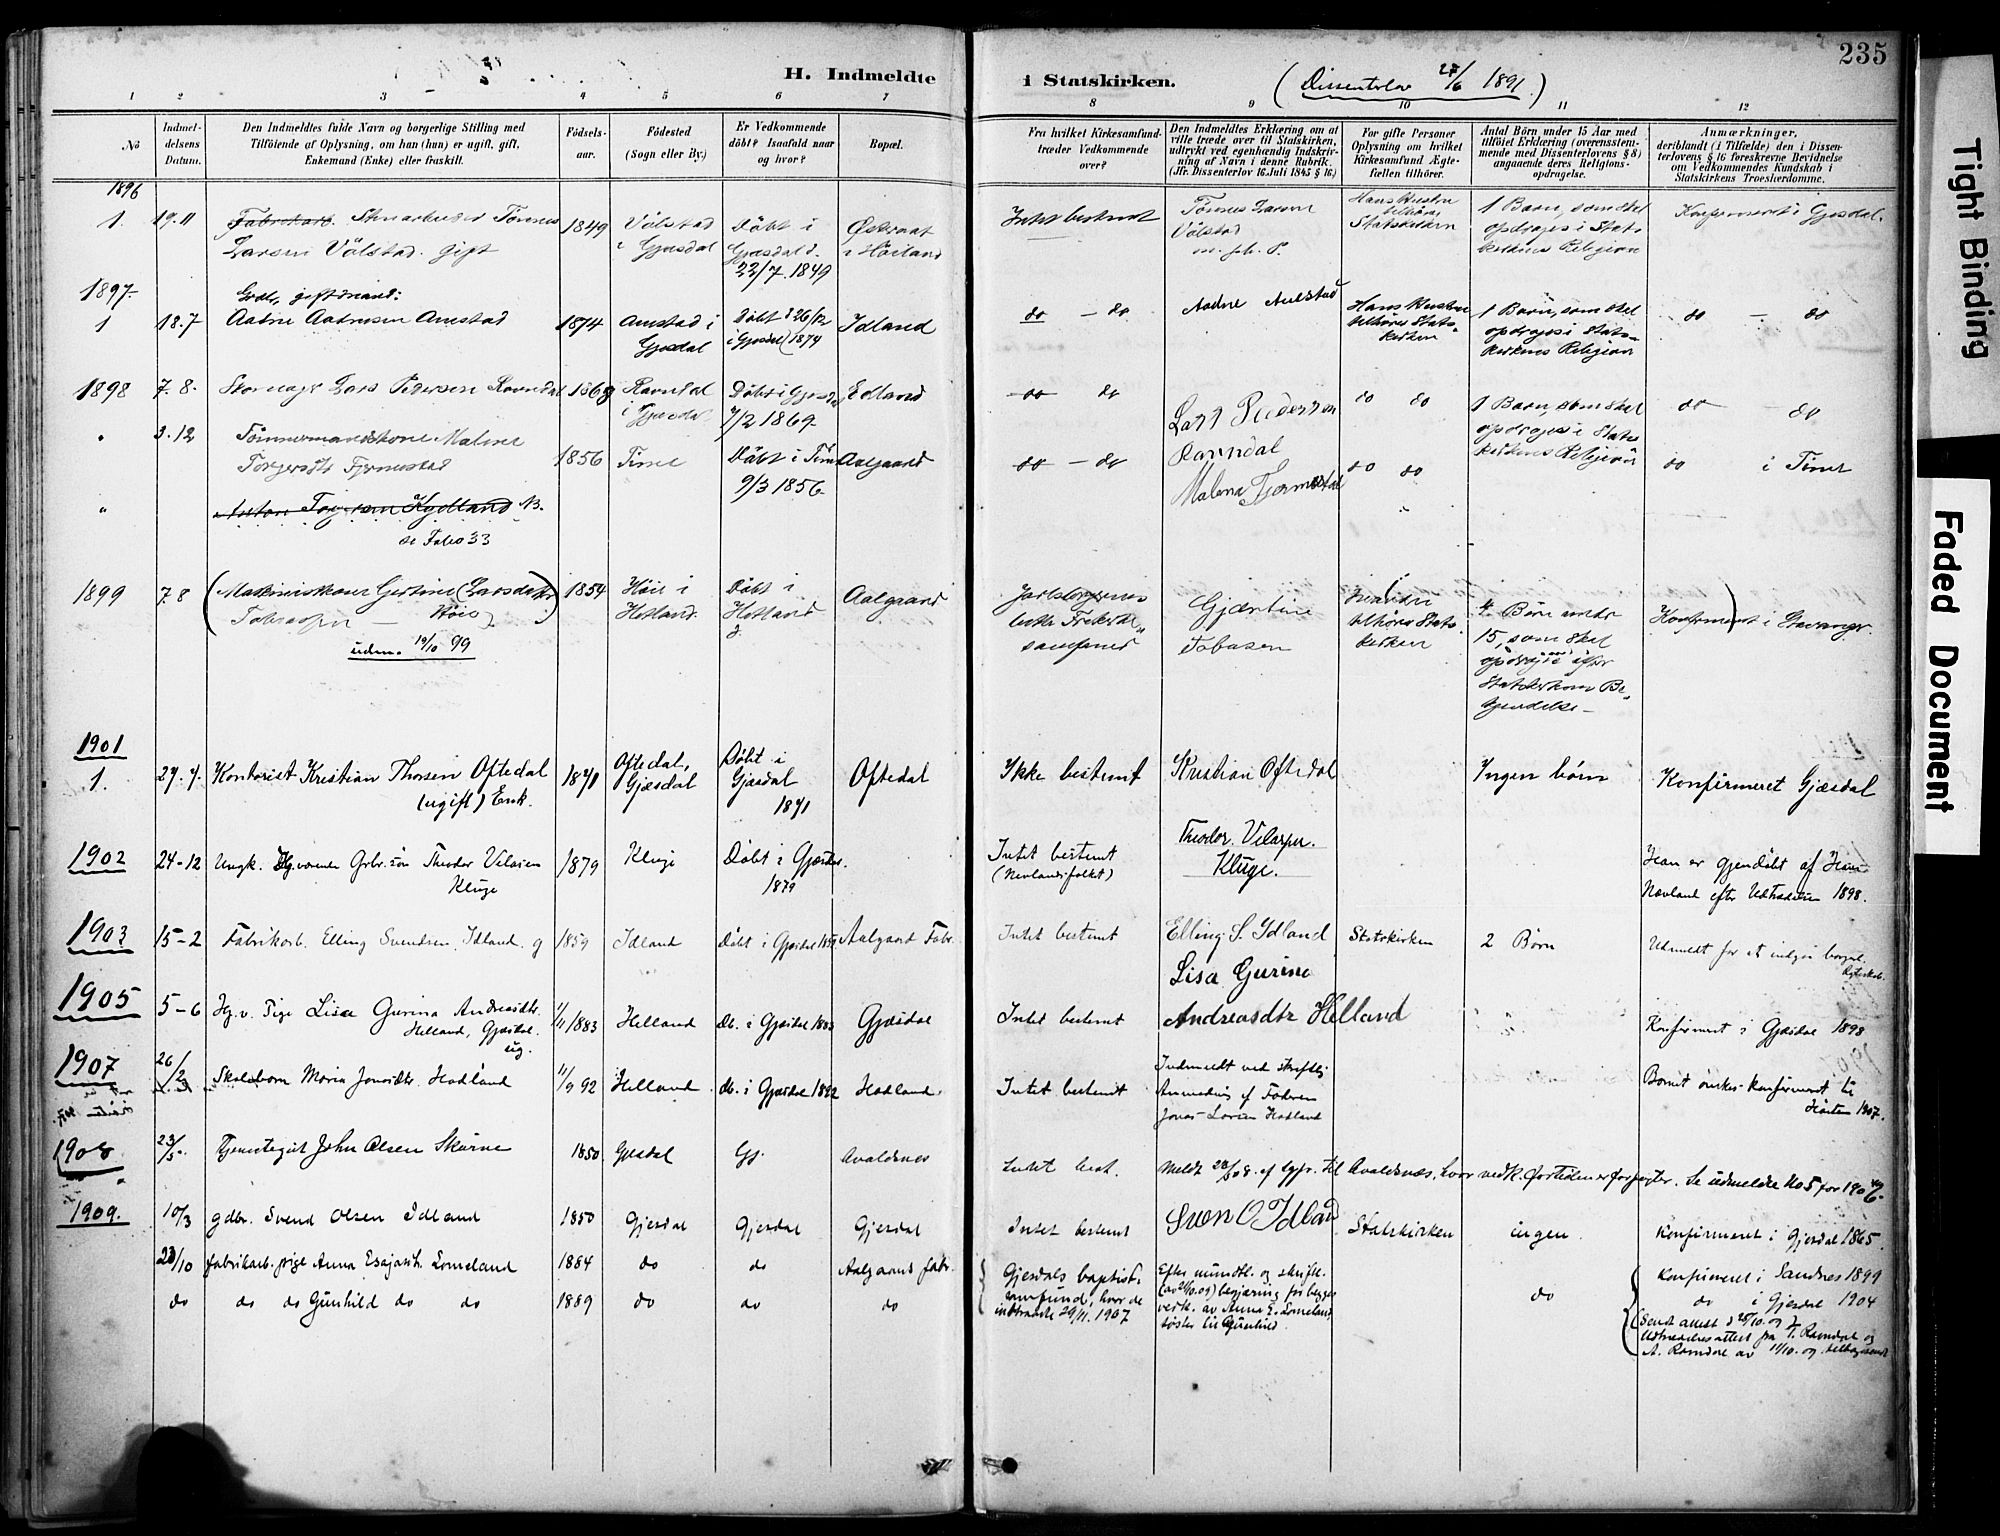 235
H. Indmeldte i Statskirken.
(Dissenterlov 27/6 1891.)
1 2 3 4 5 6 7 8 9 10 11 12
No
Indmel-
delsens
Datum.
Den Indmeldtes fulde Navn og borgerlige Stilling med
Tilföiende af Oplysning, om han (hun) er ugift, gift,
Enkemand (Enke) eller fraskilt.
Födsels-
aar.
Födested
(Sogn eller By.)
Er Vedkommende
döbt? Isaafald naar
og hvor?
Bopæl.
Fra hvilket Kirkesamfund
træder Vedkommende
over?
Den Indmeldtes Erklæring om at
ville træde over til Statskirken,
udtrykt ved egenhændig Indskriv-
ning af Navn i denne Rubrik.
(Jfr. Dissenterlov 16. Juli 1845 § 16)
For gifte Personer
Oplysning om hvilket
Kirkesamfund Ægte-
fællen tilhörer.
Antal Börn under 15 Aar med
tilföiet Erklæring (overensstem-
mende med Dissenterlovens § 8)
angaaende deres Religions-
opdragelse.
Anmærkninger,
deriblandt (i Tilfælde) den i Dissen-
terlovens § 16 foreskrevne Bevidnelse
om Vedkommendes Kundskab i
Statskirkens Troeslærdomme.
1896
1. 19.11 Fabrikarb. Stenarbeider Tönnes
Larsen Völstad. gift
1849
Völstad
i Gjæsdal
Döbt i
Gjæsdal d.
22/7. 1849
Östraat
i Höiland
Intet bestemt
Tönnes Larsen
Völstad
m. f. P.
Hans Hustru
tilhörer
Statskirken
1 Barn, som skal
opdrages i Stats
kirkens Religion
Konfirmeret i Gjesdal.
1897.
1 18.7
gift mand:
Aadne Aadnesen Aurstad
1874
Aurstad i
Gjesdal
Döbt d 26/12
i Gjesdal 1874
Idland
do - do
Hans Hustru
tilhörer Stats-
kirken
1 Barn, som skal
opdrages i Stats-
kirkens Religion
do - do
1898 7.8. Lars Pedersen Ravndal
1868
Ravndal
i Gjesdal
Döbt i Gjesdal
7/2 1869
Edland
do do
Lars Pedersen
Ravndal
do do
1 Barn, som skal
opdrages i Stats
kirkens Religion
do - do
" 3.12 Tömmermandskone Malene
Torgersdtr Fjermestad
1856
Time
Döbt i Time
9/3 1856
Aalgaard
do - do
Malena Fjermestad
do do
do i Time
" Anton Torgersen Kydland NB.
se Folio 33
1899 7.8 (Maskinistkone Gertine (Larsdatter
Tobiassen - Höie)
udm. 19/10 99
1854
Höie i
Hetland
Döbt i
Hetland
Aalgaard
Jarlsbergernes
luth. Frikirke-
samfund
Gjærtine
Tobasen
tilhörer Stats
kirken
4 Börn under
15, som skal
opdrages efter
Statskirkens Be-
kjendelse -
Konfirmeret i Stavanger.
1901
1. 27.7. Kontorist Kristian Thorsen Oftedal
(ugift) Enk.
1871
Oftedal,
Gjæsdal
Döbt i
Gjæsdal
1871
Oftedal
Ikke bestemt
Kristian Oftedal
Ingen börn
Konfirmeret Gjæsdal
1902 24-12 Ungk. Hjv. Grbr.sön Theodor Velasen
Kluge
1879
Kluge
Döbt i Gjæsdal.
1879
Intet bestemt
(Nevlandsfolket)
Theodor Velasen.
Kluge.
Han er gjendöbt af
Nævland efter Udtrædelsen 1898.
1903 15-2 Fabrikarb. Elling Svendsen Idland. g
1859
Idland
Döbt i Gjæsdal 1859
Aalgaard Fabr.
Intet bestemt
Elling S. Idland
Statskirken
2 Börn
Udmeldt for at indgaa borgel.
Ægteskab.
1905 5-6 Hj. v. Pige Lisa Gurina Andreasdtr.
Helland, Gjæsdal.
ug.
1/11 1883
Helland
Db. i Gjæsdal 1883
Gjæsdal
Intet bestemt
Lisa Gurine
Andreasdtr Helland
Konfirmeret i Gjæsdal 1898
1907 26/2 Skolebarn Maria Jonasdtr. Hadland
11/9 92
Helland
db. i Gjæsdal 1892
Hadland
Intet bestemt
Indmeldt ved skriftlig
Anmeldning af Faderen
Jonas Larsen Hadland
Barnet önskes konfirmeret til
Hösten 1907.
1908 23/5 Tjenestegut John Olsen Skurve
1850
Gjesdal
Gj.
Avaldsnes
Intet best.
Meldt 28/5 08. af sgpr. til Avaldsnæs, hvor vedk. for tiden er forpagter. Se udmeldte No 5 for 1906.
1909. 10/3 gdbr. Svend Olsen Idland
1850
Gjesdal
Gjesdal
Gjesdal
Intet bestemt
Sven O Idland
Statskirken
ingen.
Konfirmeret i Gjesdal 1865.
23/10 fabrikarb. pige Anna Esajasdt. Lomeland
1884
do
do
Aalgaards fabr.
Gjesdals baptist-
samfund, hvor de
indtraadte 29/11. 1907
Efter mundtl. og skriftl.
(av 21/10.09) begjæring fra begge
vedk. av Anna E. Lomeland,
söster til Gunhild.
Konfirmeret i Sandnes 1899
do do do Gunhild do do
1889
do
do
do
do
do i Gjesdal 1904
Sendt attest d 25/10. 09 T.
Udtrædelsesattest fra T. Ravndal og
A. Ravndal av 11/10. 09 tilbagesendt
Tight Binding
Faded Document